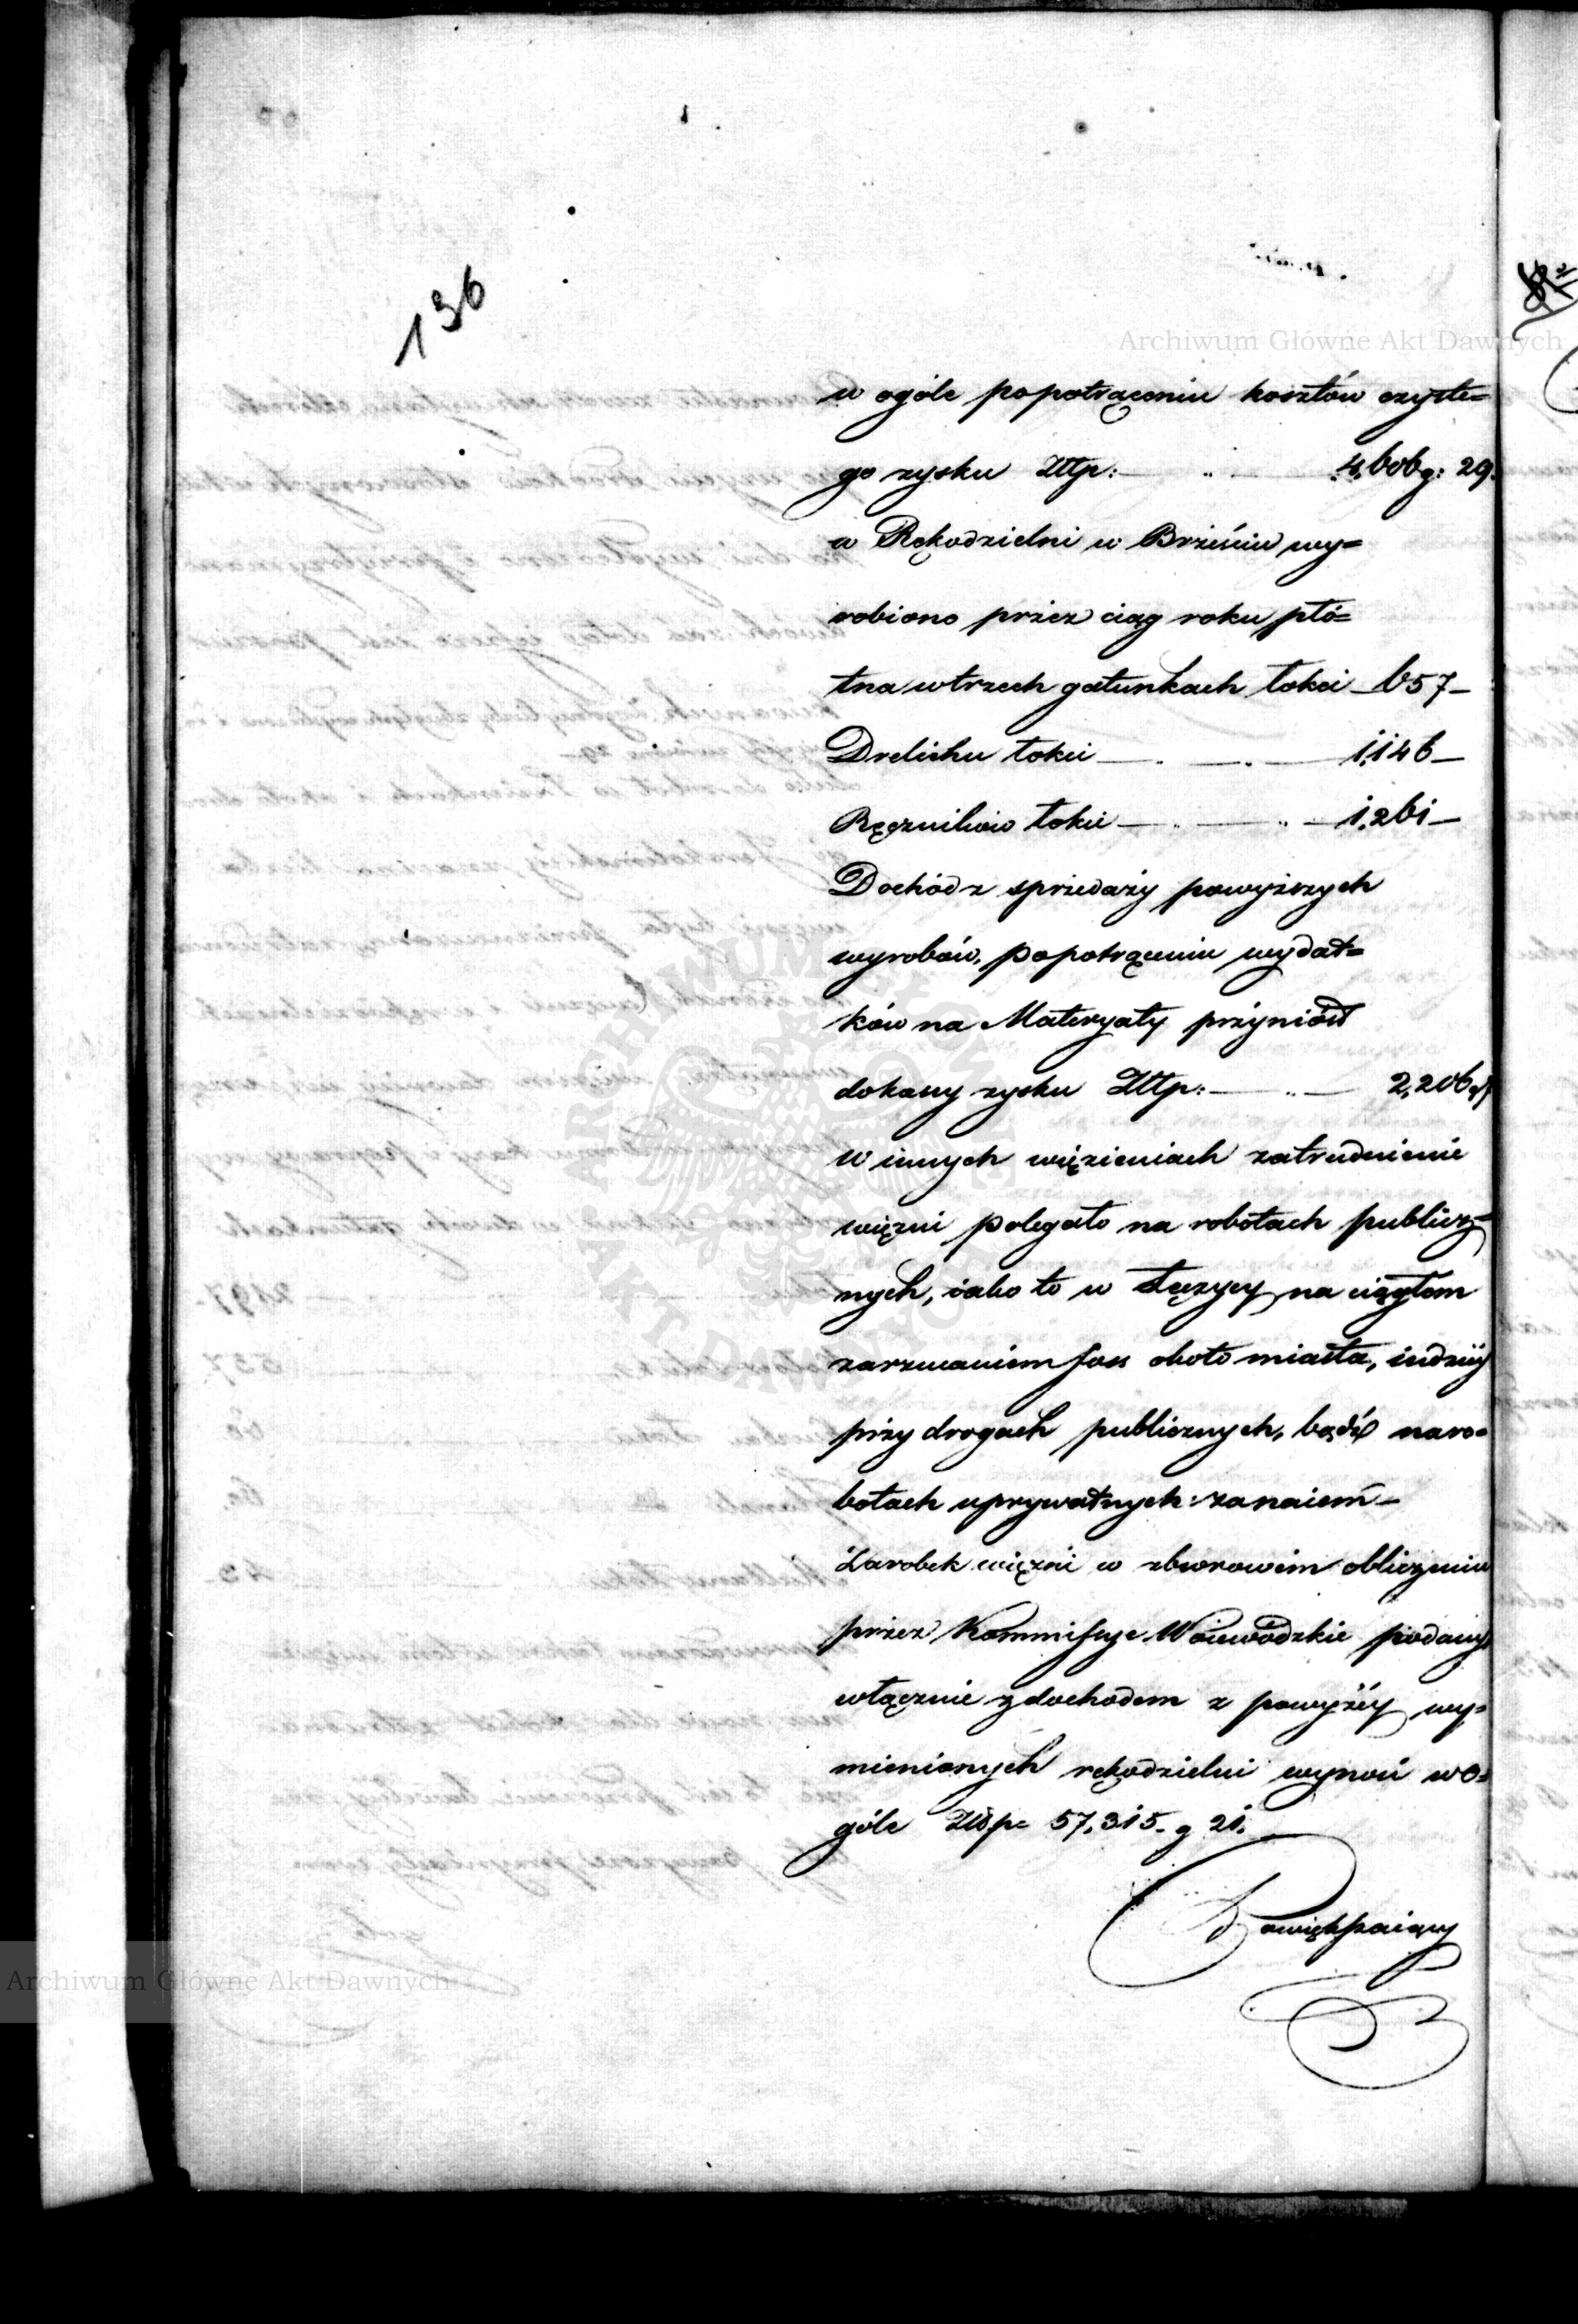 136
Archiwum Główne Akt Dawnych
w ogóle popotrąceniu kosztów czyste=
go zysku Złlp: 4,606 g: 29.
w Rękodzielni w Brześciu wy=
robiono przez ciąg roku płó=
tna w trzech gatunkach łokci 657
Drelichu łokci 1,146
Ręczników łokci 1,261
Dochód z sprzedaży powyższych
wyrobów, popotrąceniu wydat=
ków na Materyały przyniósł
dokassy zysku Złlp: 2,206
W innych więzieniach zatrudnienie
więzni polegało na robotach publicz=
nych, iako to w Łęczycy na ciągłem
zarzucaniem foss około miasta, indziéy
przy drogach publicznych, bądź naro=
botach uprywatnych zanaiem
Zarobek więzni w zborowém obliczeniu
przez Kommissye Woiewódzkie podany
włącznie z dochodem z powyżéy wy=
mienionych rękodzielni wynosi wo=
góle Złp= 57,315. g 21.
Powiększaiący
Archiwum Główne Akt Dawnych
ARCHIWUM GŁÓWNE AKT DAWNYCH